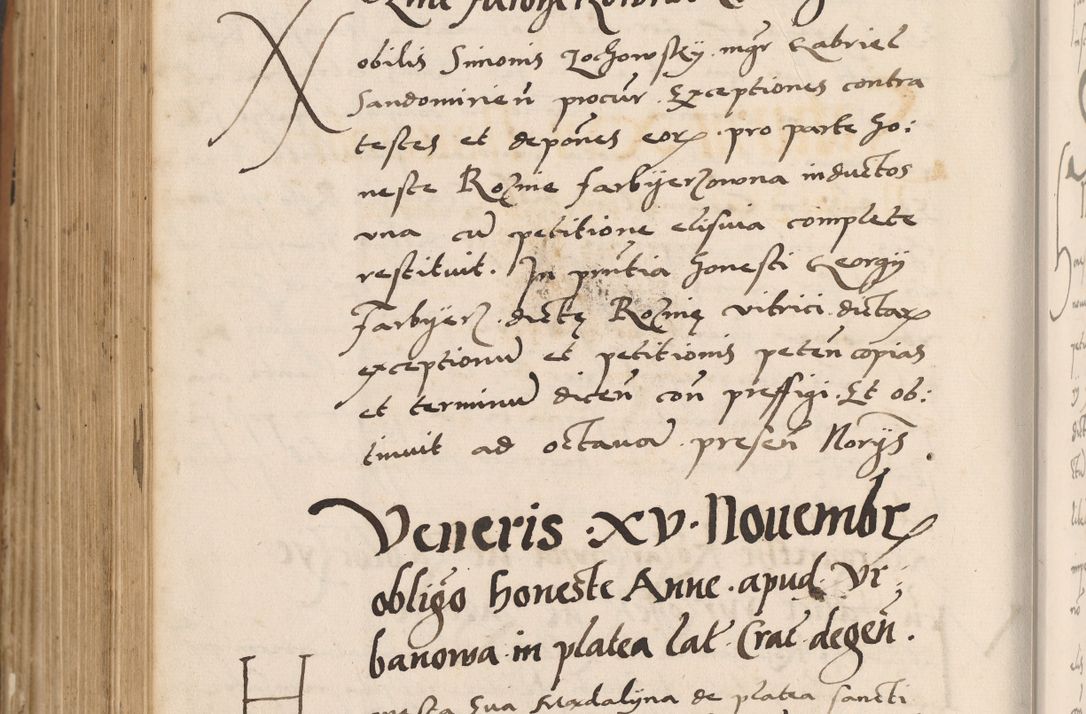 Nobilis Simonis Zochowsky mgr Gabriel
Sandomirień procur Exceptiones contra
testes et depones eor pro parte ho:
neste Rozinie farbyerzowna inductos
vna cu petitione elisiuia complete
restituit. In pñtia honesti Georgy
Farbyerz dictę Rozinię vitrici dictar
exceptionu et petitionis peteń copias
et terminu diceń coń preffigi. Et ob:
tinuit ad octaua preseń Norys.
Veneris · xv · Nouembr
obligo honeste Anne · apud Vr:
banowa in platea lat Crac degeń.
Honesta Sua Magdalyna de platea sancti